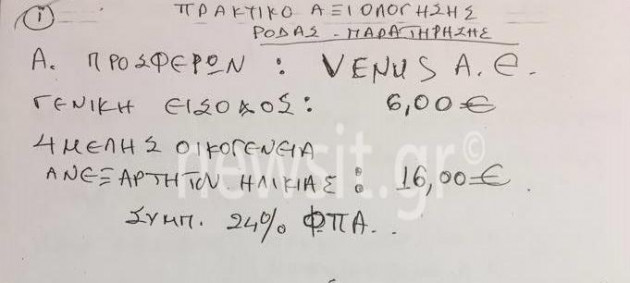 ① ΠΡΑΚΤΙΚΟ ΑΞΙΟΛΟΓΗΣΗΣ
ΡΟΔΑΣ - ΠΑΡΑΤΗΡΗΣΗΣ
Α. ΠΡΟΣΦΕΡΩΝ : VENUS A.E.
ΓΕΝΙΚΗ ΕΙΣΟΔΟΣ: 6,00€
4 ΜΕΛΗΣ ΟΙΚΟΓΕΝΕΙΑ
newsit.gr©
ΑΝΕΞΑΡΤΗΤΟΥ ΗΛΙΚΙΑΣ : 16,00€
ΣΥΜΠ. 24% ΦΠΑ..